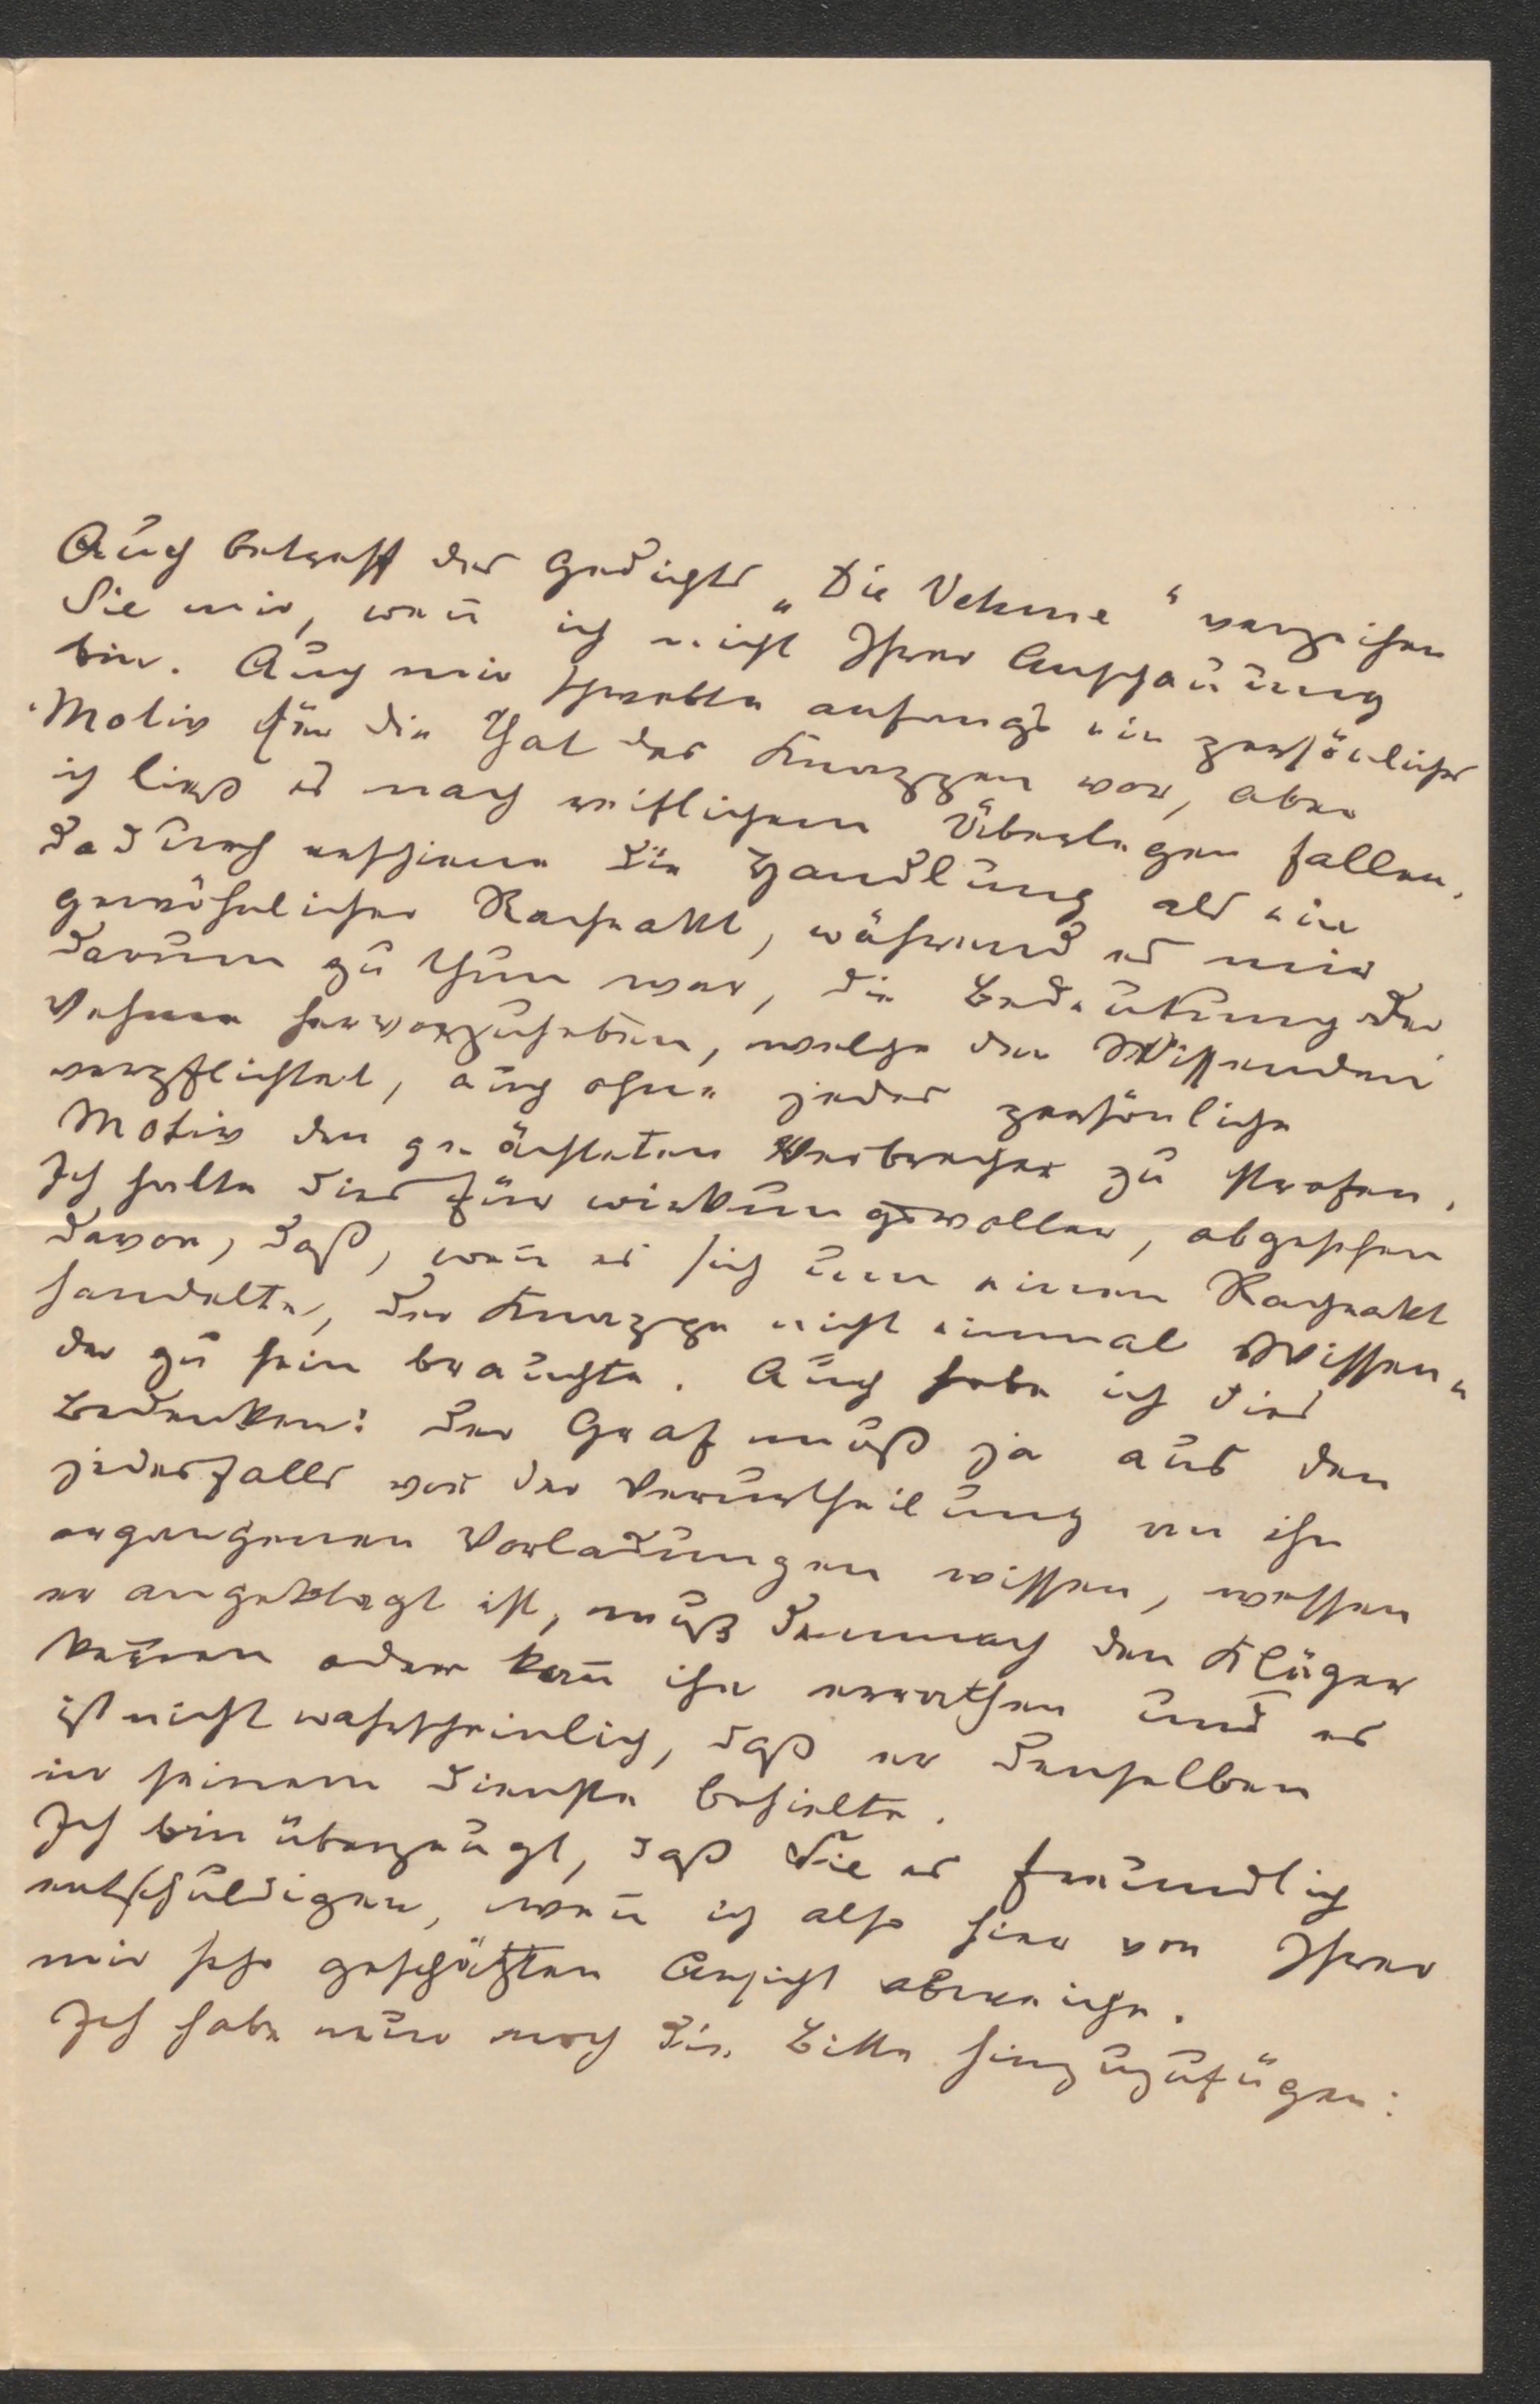 Auch betreff des Gedichts „Die Vehme“ verzeihen
Sie mir, wen̄ ich nicht Ihrer Anschauung
bin. Auch mir schwebte anfangs ein persönliches
Motiv für die That des Knappen vor, aber
ich ließ es nach reiflichem Überlegen fallen.
Dadurch erschiene die Handlung als ein
gewöhnlicher Racheakt, während es mir
darum zu thun war, die Bedeutung der
Vehme hervorzuheben, welche den Wissenden
verpflichtet, auch ohne jedes persönliche
Motiv den geächteten Verbrecher zu strafen.
Ich halte dies für wirkungsvoller, abgesehen
davon, daß, wen̄ es sich um einen Racheakt
handelte, der Knappe nicht einmal Wissen„
der zu sein brauchte. Auch habe ich dies
Bedenken: der Graf muß ja aus den
jedesfalls vor der Verurtheilung an ihn
ergangenen Vorladungen wissen, wessen
er angeklagt ist, muß demnach den Kläger
ken̄en oder kan̄ ihn errathen und es
ist nicht wahrscheinlich, daß er denselben
in seinem Dienste behielte.
Ich bin überzeugt, daß Sie es freundlich
entschuldigen, wen̄ ich also hier von Ihrer
mir sehr geschätzten Ansicht abweiche.
Ich habe nur noch die Bitte hinzuzufügen: